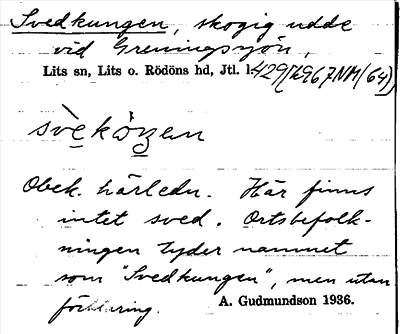 Svedkungen, skogig udde
vid Greningsjön,
Lits sn, Lits o. Rödöns hd, Jtl. l.
svèkòŋen
Obek. härledn. Här finns
intet sved. Ortsbefolk-
ningen tyder namnet
som "Svedkungen", men utan
förklaring.
A. Gudmundson 1936.